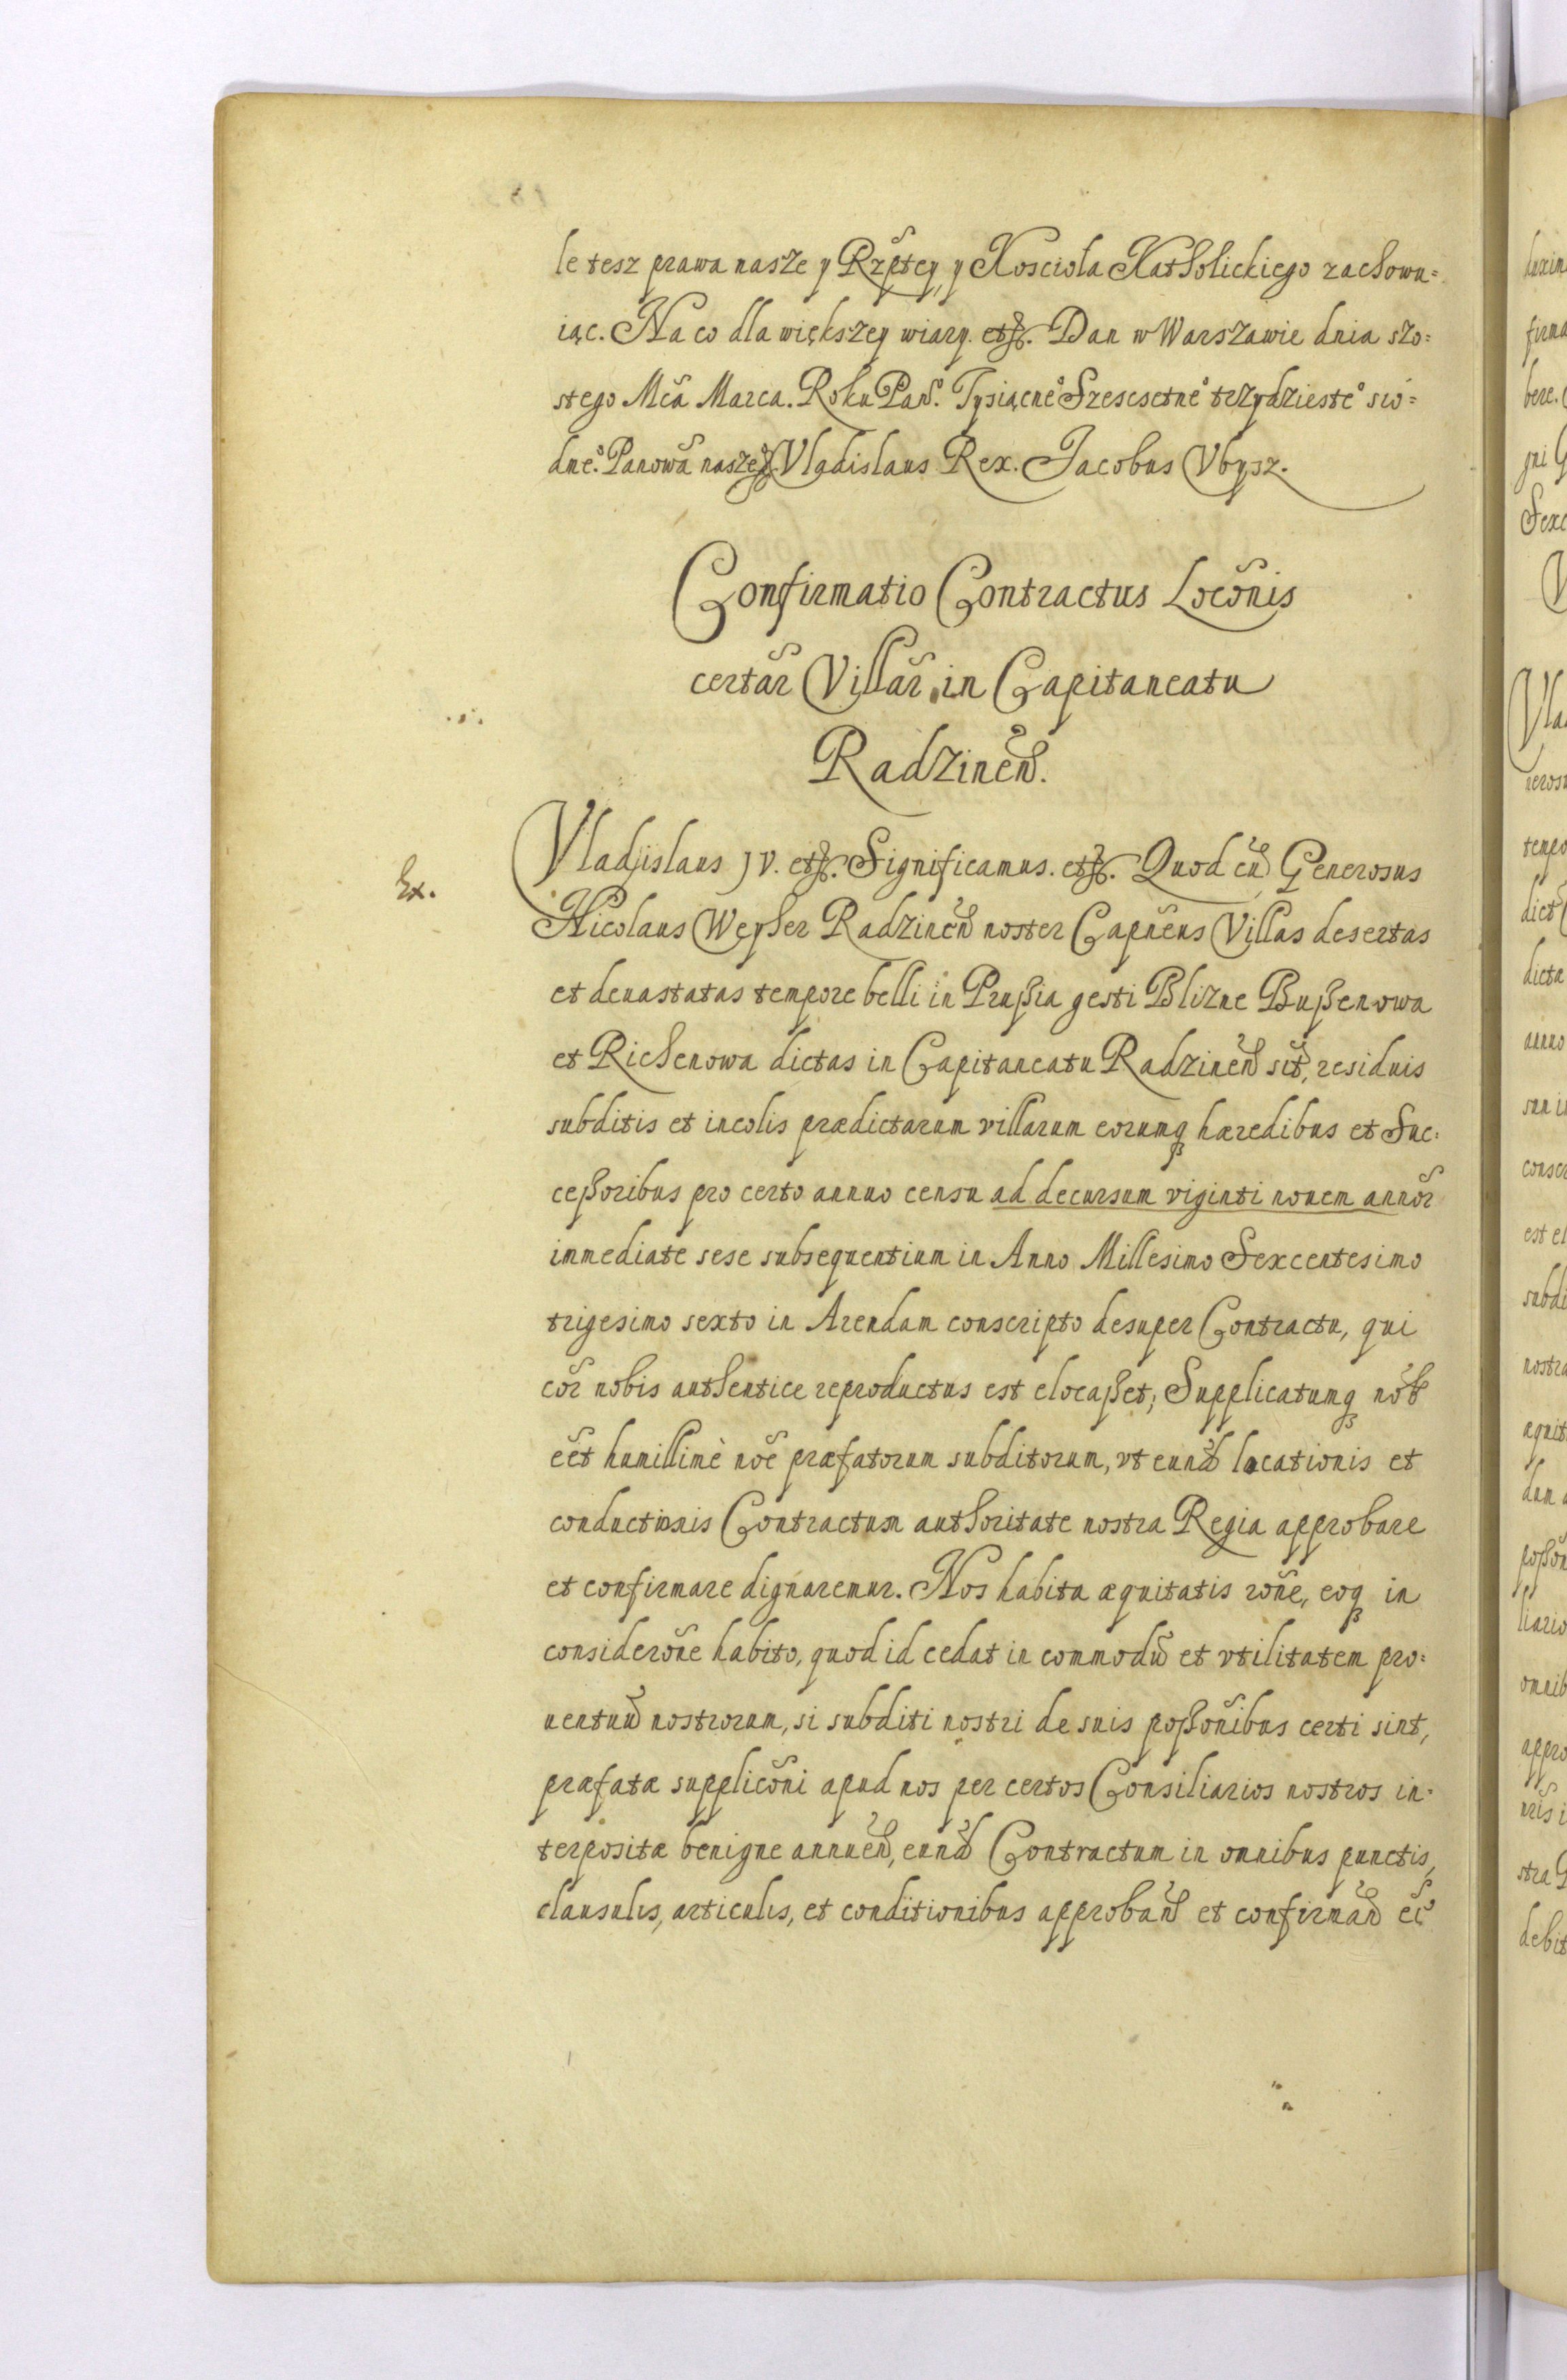 le tesz prawa nasze y Rzptey, y Kosciola Katholickiego zachowu=
iąc. Na co dla większey wiary. etc. Dan w Warszawie dnia szo=
stego Mca Marca. Roku Pań. Tysiącneo Szescsetneo trzydziesteo sió=
dmeo. Panowa nasze Vladislaus Rex. Jacobus Vbysz.
Confirmatio Contractus Locõnis
certar̃ Villar̃ in Capitaneatu
Radzineñ.
Ex.
Vladislaus IV. etc. Significamus. etc. Quod cũ Generosus
Nicolaus Weyher Radzineñ noster Capñeus Villas desertas
et deuastatas tempore belli in Prußia gesti Blizne Bußenowa
et Richenowa dictas in Capitaneatu Radzineñ sit, residuis
subditis et incolis prædictarum villarum eorumq hæredibus et Suc=
ceßoribus pro certo annuo censu ad decursum viginti nouem annor̃
immediate sese subsequentium in Anno Millesimo Sexcentesimo
trigesimo sexto in Arendam conscripto desuper Contractu, qui
cor̃ nobis authentice reproductus est elocaßet; Supplicatumq nob̃
eẽt humillimè noẽ præfatorum subditorum, vt eund̃ locationis et
conductionis Contractum authoritate nostra Regia approbare
et confirmare dignaremur. Nos habita æquitatis roñe, eoq in
consideroñe habito, quod id cedat in commodũ et vtilitatem pro=
uentuũ nostrorum, si subditi nostri de suis poßoñibus certi sint,
præfatæ supplicõni apud nos per certos Consiliarios nostros in=
terpositæ benigne annueñ, eund̃ Contractum in omnibus punctis,
clausulis, articulis, et conditionibus approbañ et confirmañ